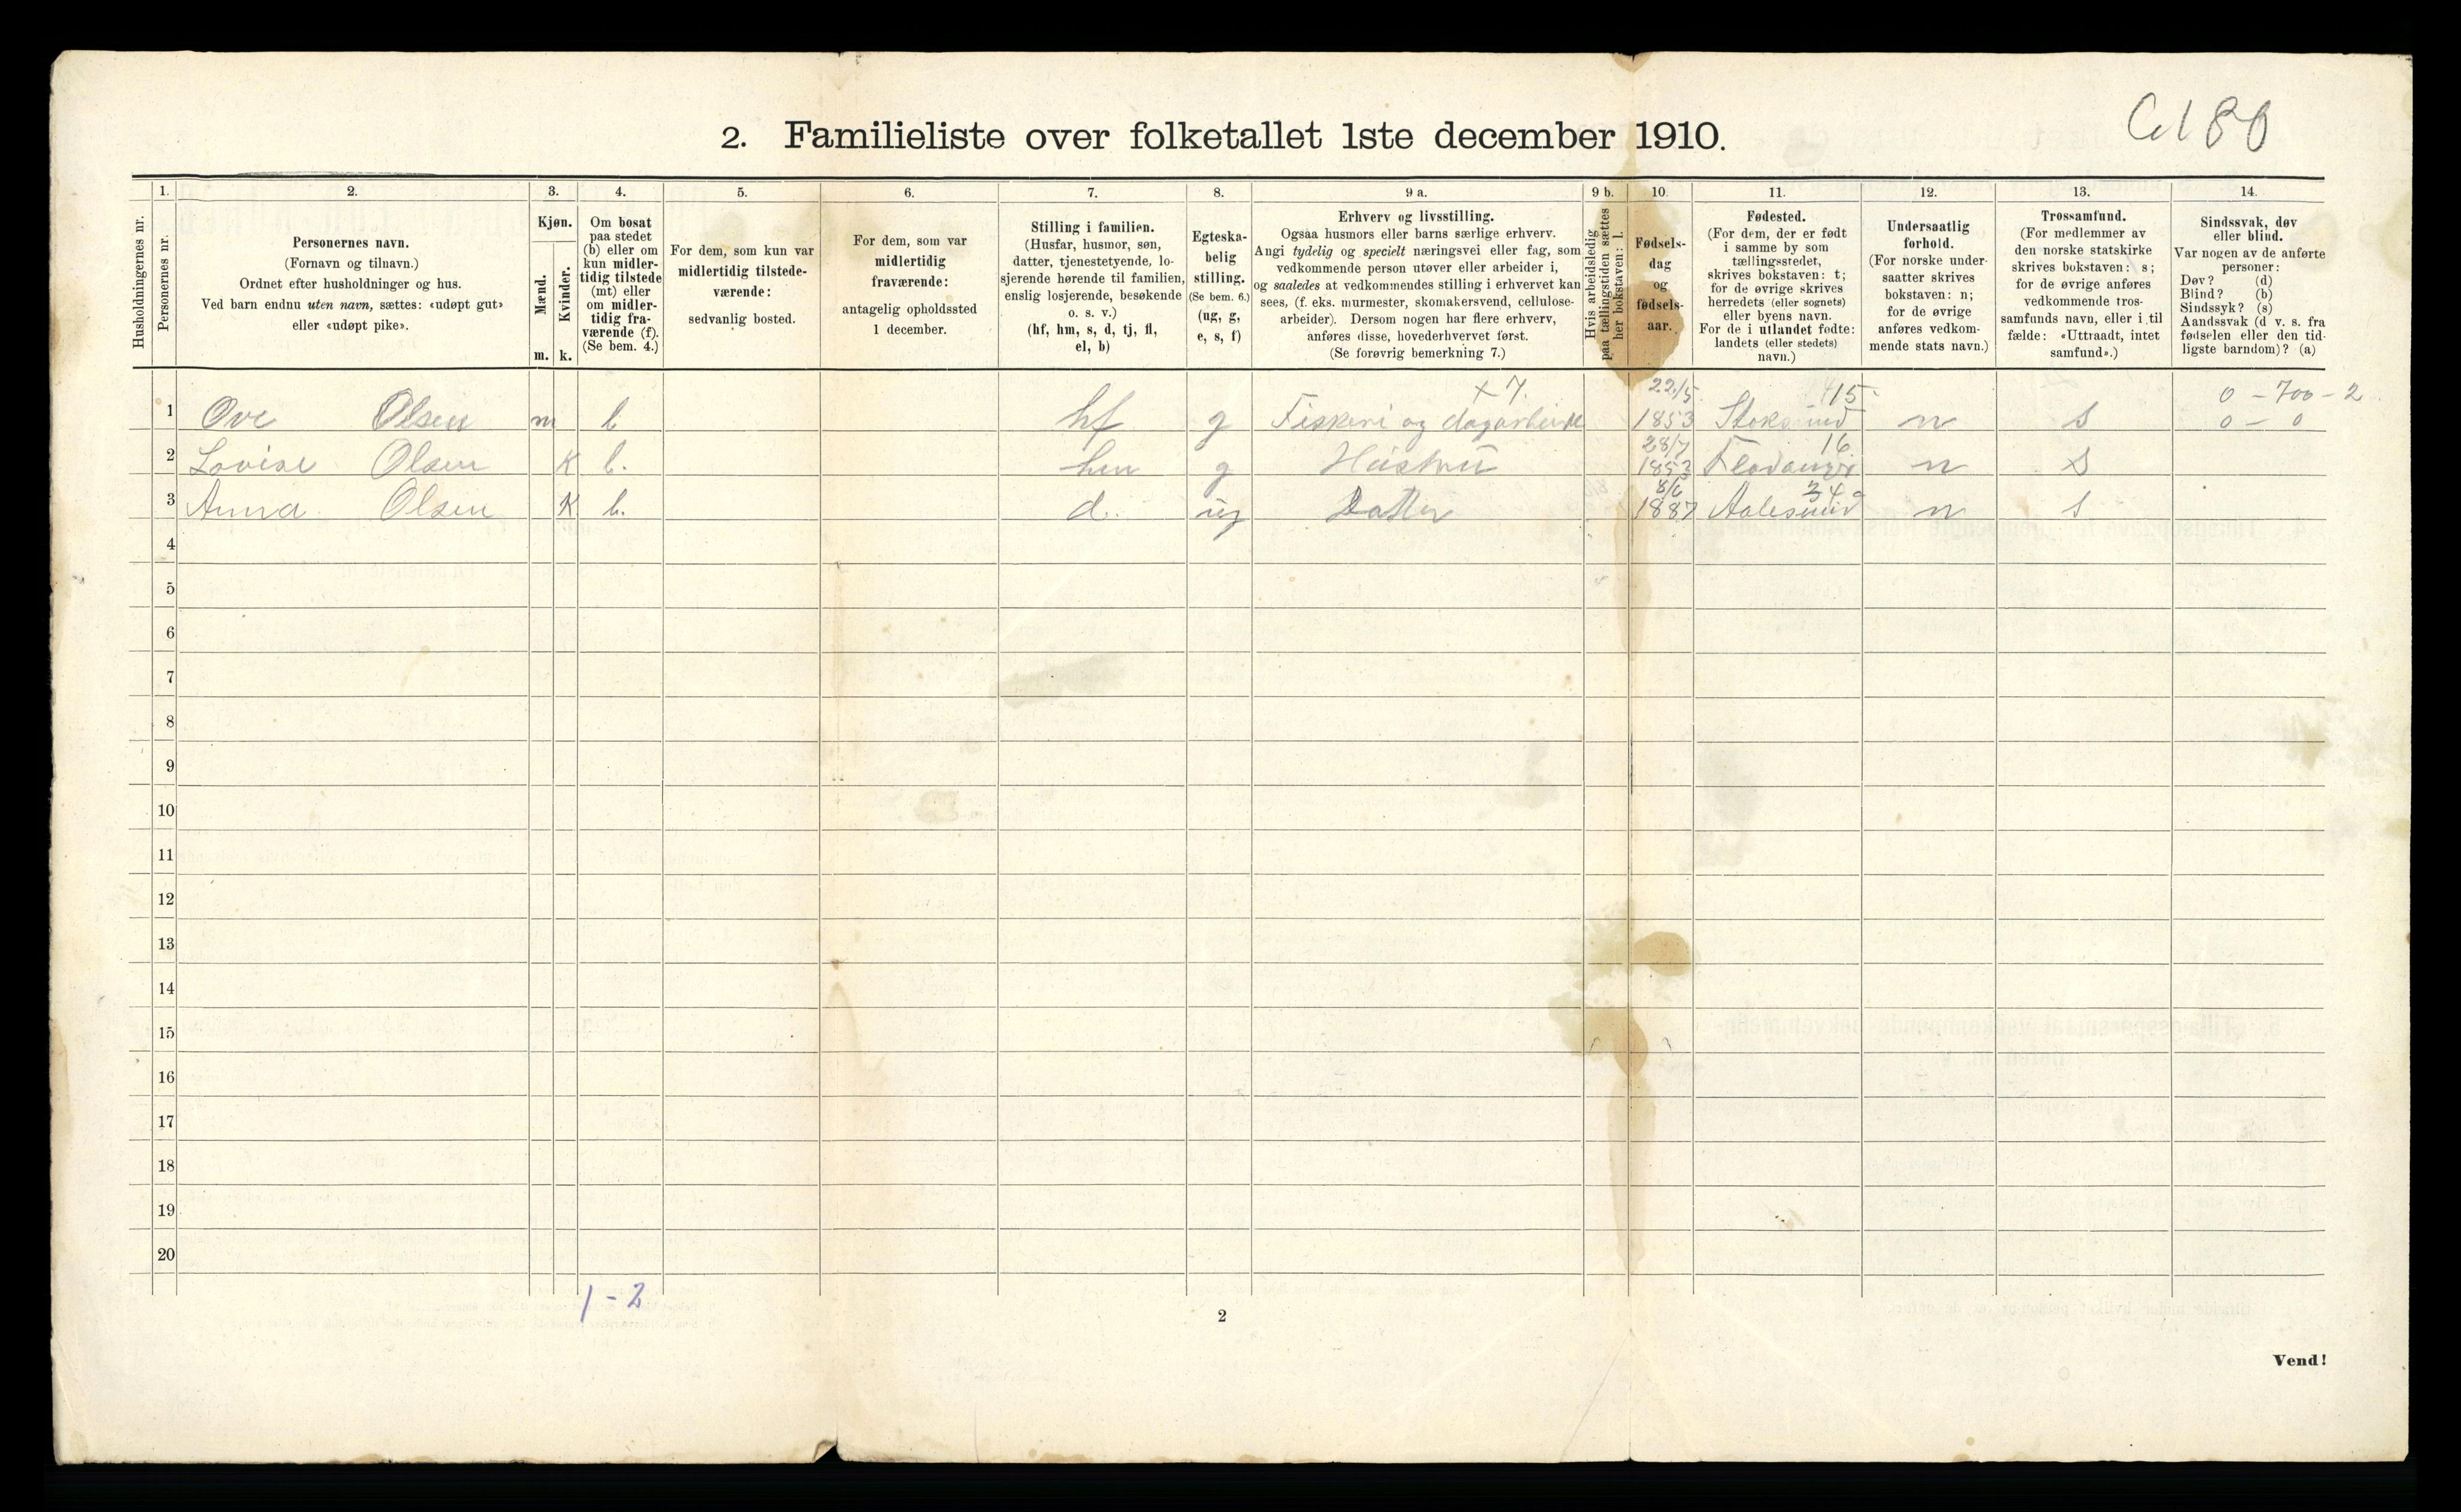 2. Familieliste over folketallet 1ste december 1910.
1.
2.
3.
4.
5.
6.
7.
8.
9 a.
9 b.
10.
11.
12.
13.
14.
Husholdningernes nr.
Personernes nr.
Personernes navn.
(Fornavn og tilnavn.)
Ordnet efter husholdninger og hus.
Ved barn endnu uten navn, sættes: «udøpt gut»
eller «udøpt pike».
Kjøn.
Mænd.
Kvinder.
m.
k.
Om bosat
paa stedet
(b) eller om
kun midler-
tidig tilstede
(mt) eller
om midler-
tidig fra-
værende (f).
(Se bem. 4.)
For dem, som kun var
midlertidig tilstede-
værende:
sedvanlig bosted.
For dem, som var
midlertidig
fraværende:
antagelig opholdssted
1 december.
Stilling i familien.
(Husfar, husmor, søn,
datter, tjenestetyende, lo-
sjerende hørende til familien,
enslig losjerende, besøkende
o. s. v.)
(hf, hm, s, d, tj, fl,
el, b)
Egteska-
belig
stilling.
(Se bem. 6.)
(ug, g,
e, s, f)
Erhverv og livsstilling.
Ogsaa husmors eller barns særlige erhverv.
Angi tydelig og specielt næringsvei eller fag, som
vedkommende person utøver eller arbeider i,
og saaledes at vedkommendes stilling i erhvervet kan
sees, (f. eks. murmester, skomakersvend, cellulose-
arbeider). Dersom nogen har flere erhverv,
anføres disse, hovederhvervet først.
(Se forøvrig bemerkning 7.)
Hvis arbeidsledig
paa tællingstiden sættes
her bokstaven: l.
Fødsels-
dag
og
fødsels-
aar.
Fødested.
(For dem, der er født
i samme by som
tællingsstedet,
skrives bokstaven: t;
for de øvrige skrives
herredets (eller sognets)
eller byens navn.
For de i utlandet fødte:
landets (eller stedets)
navn.)
Undersaatlig
forhold.
(For norske under-
saatter skrives
bokstaven: n;
for de øvrige
anføres vedkom-
mende stats navn.)
Trossamfund.
(For medlemmer av
den norske statskirke
skrives bokstaven: s;
for de øvrige anføres
vedkommende tros-
samfunds navn, eller i til
fælde: «Uttraadt, intet
samfund».)
Sindssvak, døv
eller blind.
Var nogen av de anførte
personer:
Døv? (d)
Blind? (b)
Sindssyk? (s)
Aandssvak (d v. s. fra
fødselen eller den tid-
ligste barndom)? (a)
+ 7. 22/5 15 0 - 700 - 2
1 Ove Olsen m b hf g Fiskeri og dagarbeide 1853 n s 0 - 0
28/7 16
2 Lovise Olsen K b. hm g Hustru 1853 n s
8/6
3 Anna Olsen K b. d. ug Datter 1887 Aalesund n s
4
5
6
7
8
9
10
11
12
13
14
15
16
17
18
19
20
1-2
2
Vend!